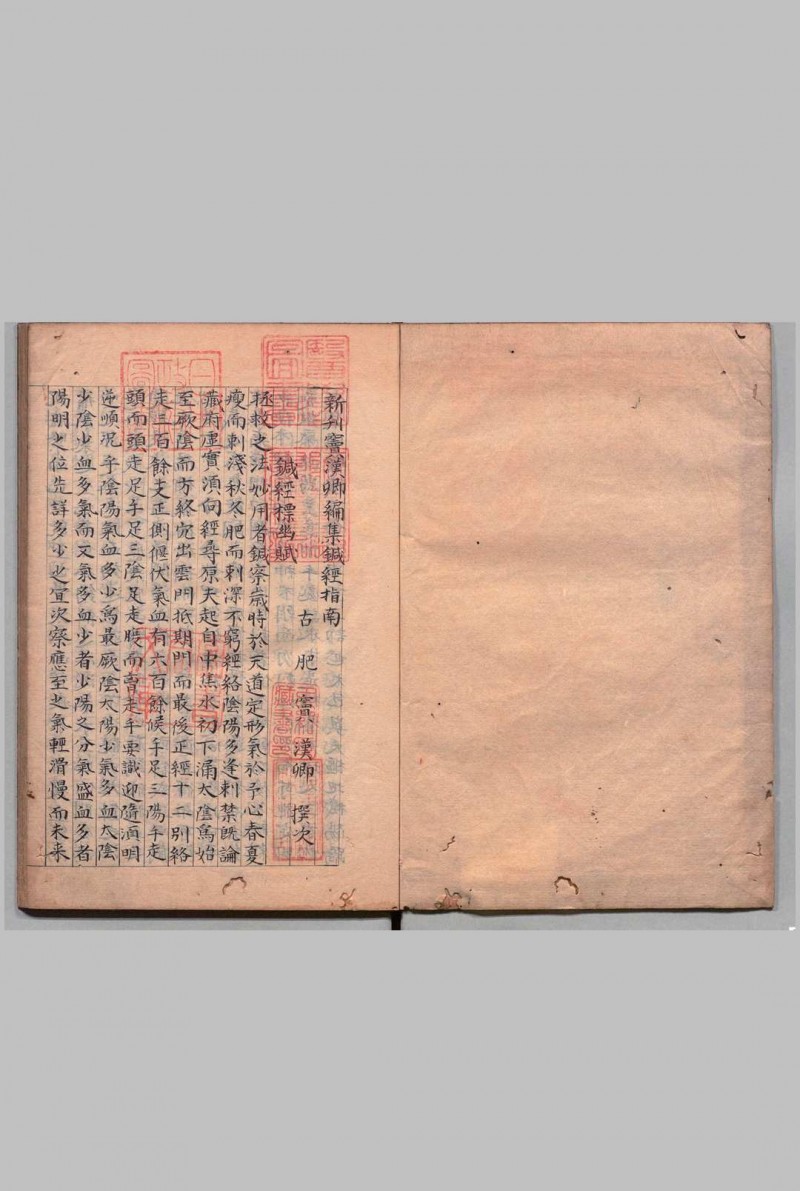 新刋竇漢卿編集鍼經指南
鍼經標幽賦
古肥竇漢卿撰次
拯救之法妙用者鍼察歲時於天道定形氣於予心春夏
瘦而刺淺秋冬肥而刺深不窮經絡陰陽多逢刺禁既論
藏府虛實湏向經尋原夫起自中焦水初下漏太陰爲始
至厥陰而方終穴出雲門抵期門而最後正經十二別絡
走三百餘支正側偃伏氣血有六百餘候手足三陽手走
頭而頭走足手足三陰足走腹而胷走手要識迎隨湏明
逆順况手陰陽氣血多少爲最厥陰太陽少氣多血太陰
少陰少血多氣而又氣多血少者少陽之分氣盛血多者
陽明之位先詳多少之宜次察應至之氣輕滑慢而未来